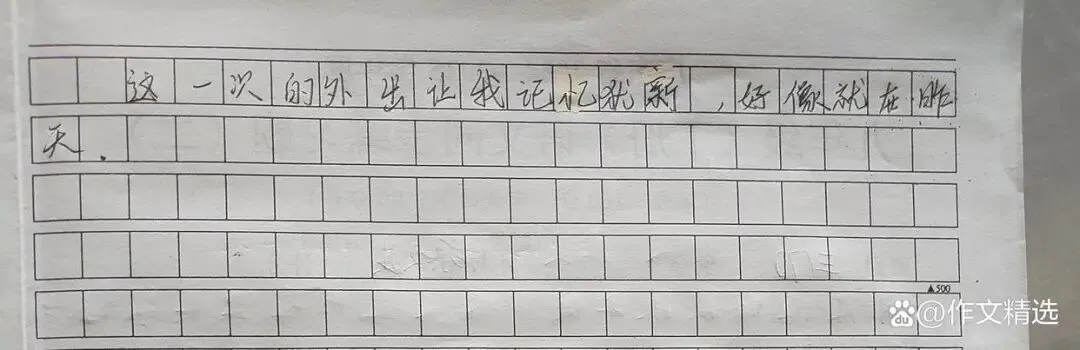 这一次的外出让我记忆犹新，好像就在昨
天.
▲500
du@作文精选